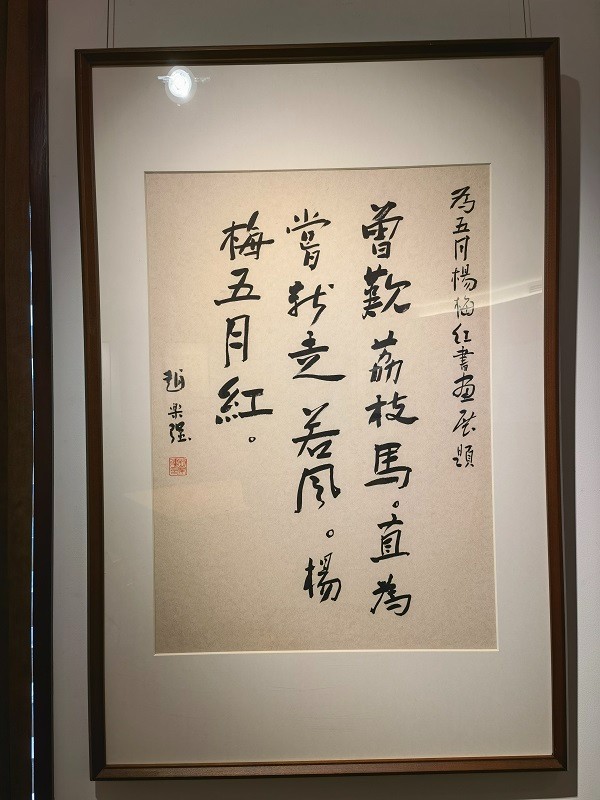 為五月楊梅紅書畫展題
曾歎荔枝馬。直為
嘗新走若風。楊
梅五月紅。
趙樂强